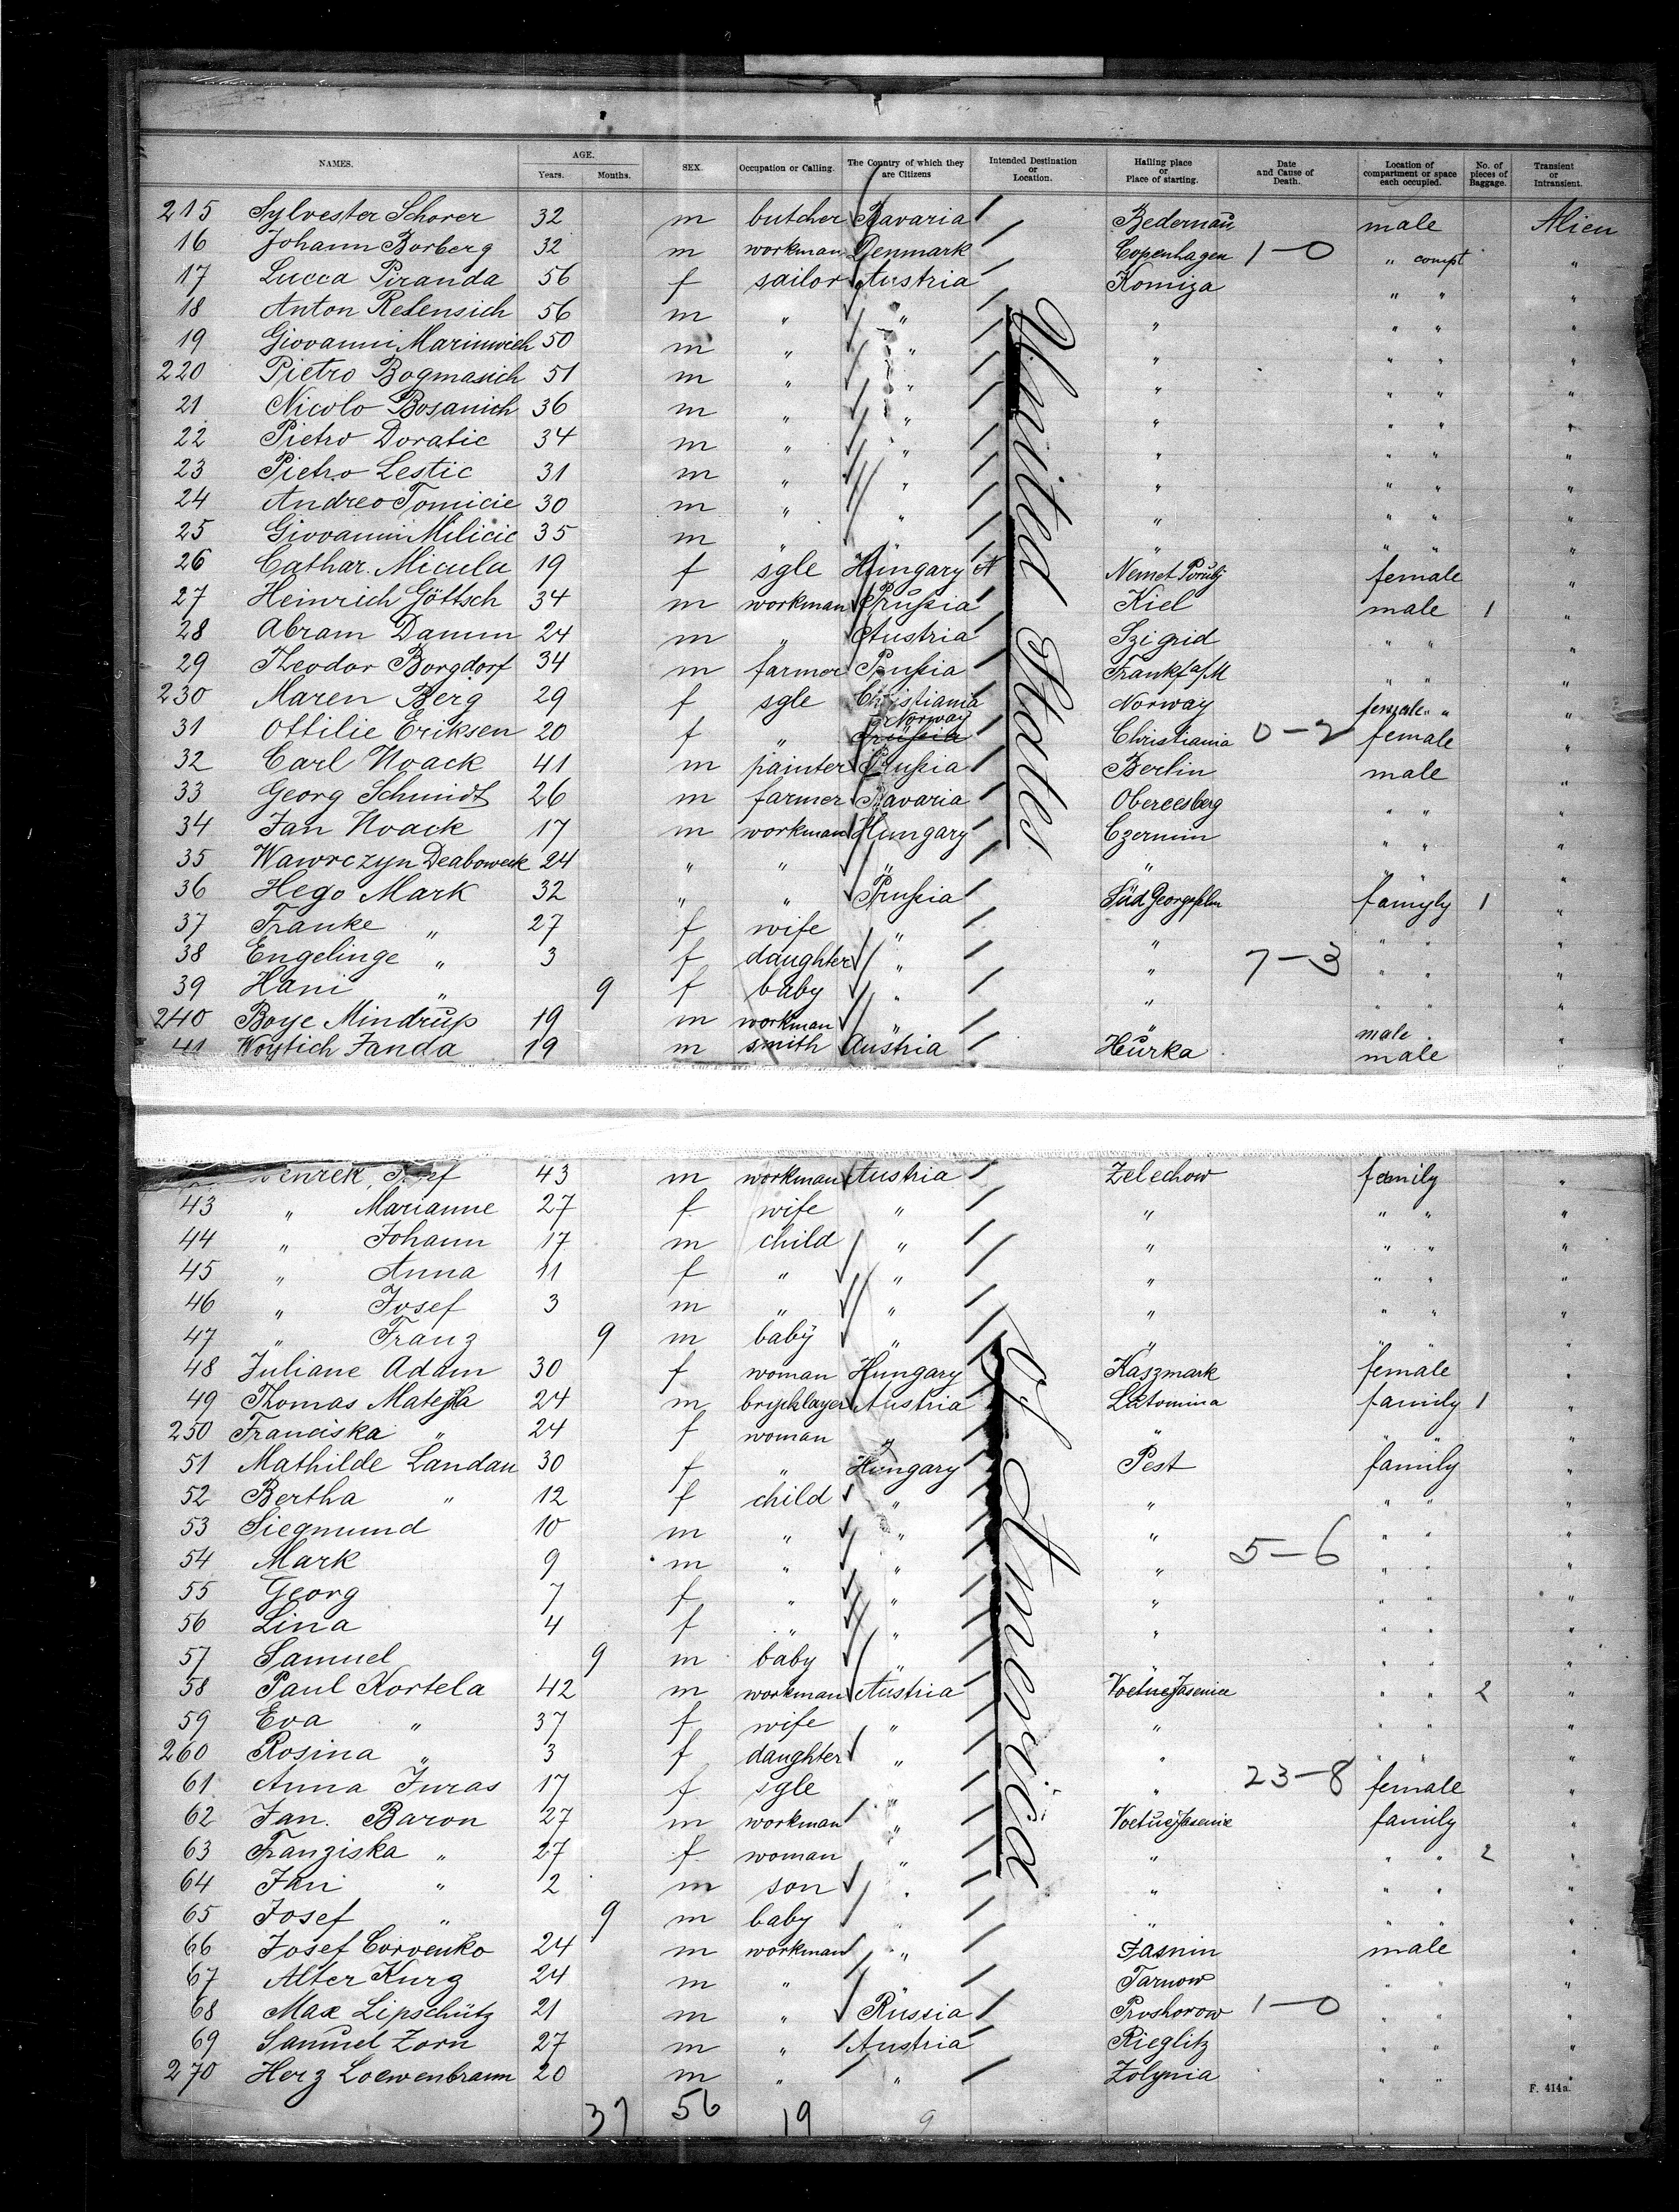 NAMES. AGE. Years. Months. SEX. Occupation or Calling. The Country of which they are Citizens Intended Destination or Location. Hailing place or Place of starting. Date and Cause of Death. Location of compartment or space each occupied. No. of pieces of Baggage. Transient or Intransient.
215 Sylvester Schorer 32 m butcher Bavaria Bedernau male Alien
16 Johann Borberg 32 m workman Denmark Copenhagen 1-0 " compt "
17 Lucca Piranda 56 f sailor Austria Komiza " " "
18 Anton Relensich 56 m " " " " " "
19 Giovanni Marinwich 50 m " " " " " "
220 Pietro Bogmasich 51 m " " " " " "
21 Nicolo Bosanich 36 m " " " " " "
22 Pietro Doratic 34 m " " " " " "
23 Pietro Lestic 31 m " " " " " "
24 Andreo Tomicie 30 m " " " " " "
25 Giovanni Milicic 35 m " " " " " "
26 Cathar. Micula 19 f sgle Hungary Nemet female "
27 Heinrich Göttsch 34 m workman Prussia Kiel male 1 "
28 Abram Damm 24 m " Austria Szigrid " " "
29 Theodor Borgdorf 34 m farmer Prussia Frankf a/M " " "
230 Maren Berg 29 f sgle Christiania Norway female " "
31 Ottilie Eriksen 20 f " Norway Prussia Christiania 0-2 female "
32 Carl Noack 41 m painter Prussia Berlin male "
33 Georg Schmidt 26 m farmer Bavaria Obereesberg " " "
34 Jan Noack 17 m workman Hungary Czermin " " "
35 Wawrczyn Deaboweck 24 " " " " " " "
36 Hego Mark 32 " " Prussia Süd family 1 "
37 Franke " 27 f wife " " " " "
38 Engelinge " 3 f daughter " " 7-3 " " "
39 Hani " 9 f baby " " " " "
240 Boye Mindrup 19 m workman " " male "
41 Woytich Janda 19 m smith Austria Hurka male "
43 m workman Austria Zelechow family "
43 " Marianne 27 f wife " " " " "
44 " Johann 17 m child " " " " "
45 " Anna 11 f " " " " " "
46 " Josef 3 m " " " " " "
47 " Franz 9 m baby " " " " "
48 Juliane Adam 30 f woman Hungary Kaszmark female "
49 Thomas Matejka 24 m brycklayer Austria Letomina family 1 "
250 Franciska " 24 f woman " " " " "
51 Mathilde Landau 30 f " Hungary Pest family "
52 Bertha " 12 f child " " " " "
53 Siegmund 10 m " " " " " "
54 Mark 9 m " " " 5-6 " " "
55 Georg 7 f " " " " " "
56 Lina 4 f " " " " " "
57 Samuel 9 m baby " " " " "
58 Paul Kortela 42 m workman Austria " " 2 "
59 Eva " 37 f wife " " " " "
260 Rosina " 3 f daughter " " " " "
61 Anna Juras 17 f sgle " " 23-8 female "
62 Jan. Baron 27 m workman " family "
63 Franziska " 27 f woman " " " " 2 "
64 Jan " 2 m son " " " " "
65 Josef " 9 m baby " " " " "
66 Josef Corvenko 24 m workman " Jasnin male "
67 Alter Kurz 24 m " Tarnow " " "
68 Max Lipschütz 21 m " Russia Proshorow 1-0 " " "
69 Samuel Zorn 27 m " Austria Rieglitz " " "
270 Herz Loewenbraun 20 m " " Zolynia " " "
United States of America
F. 414a.
37 56 19 9